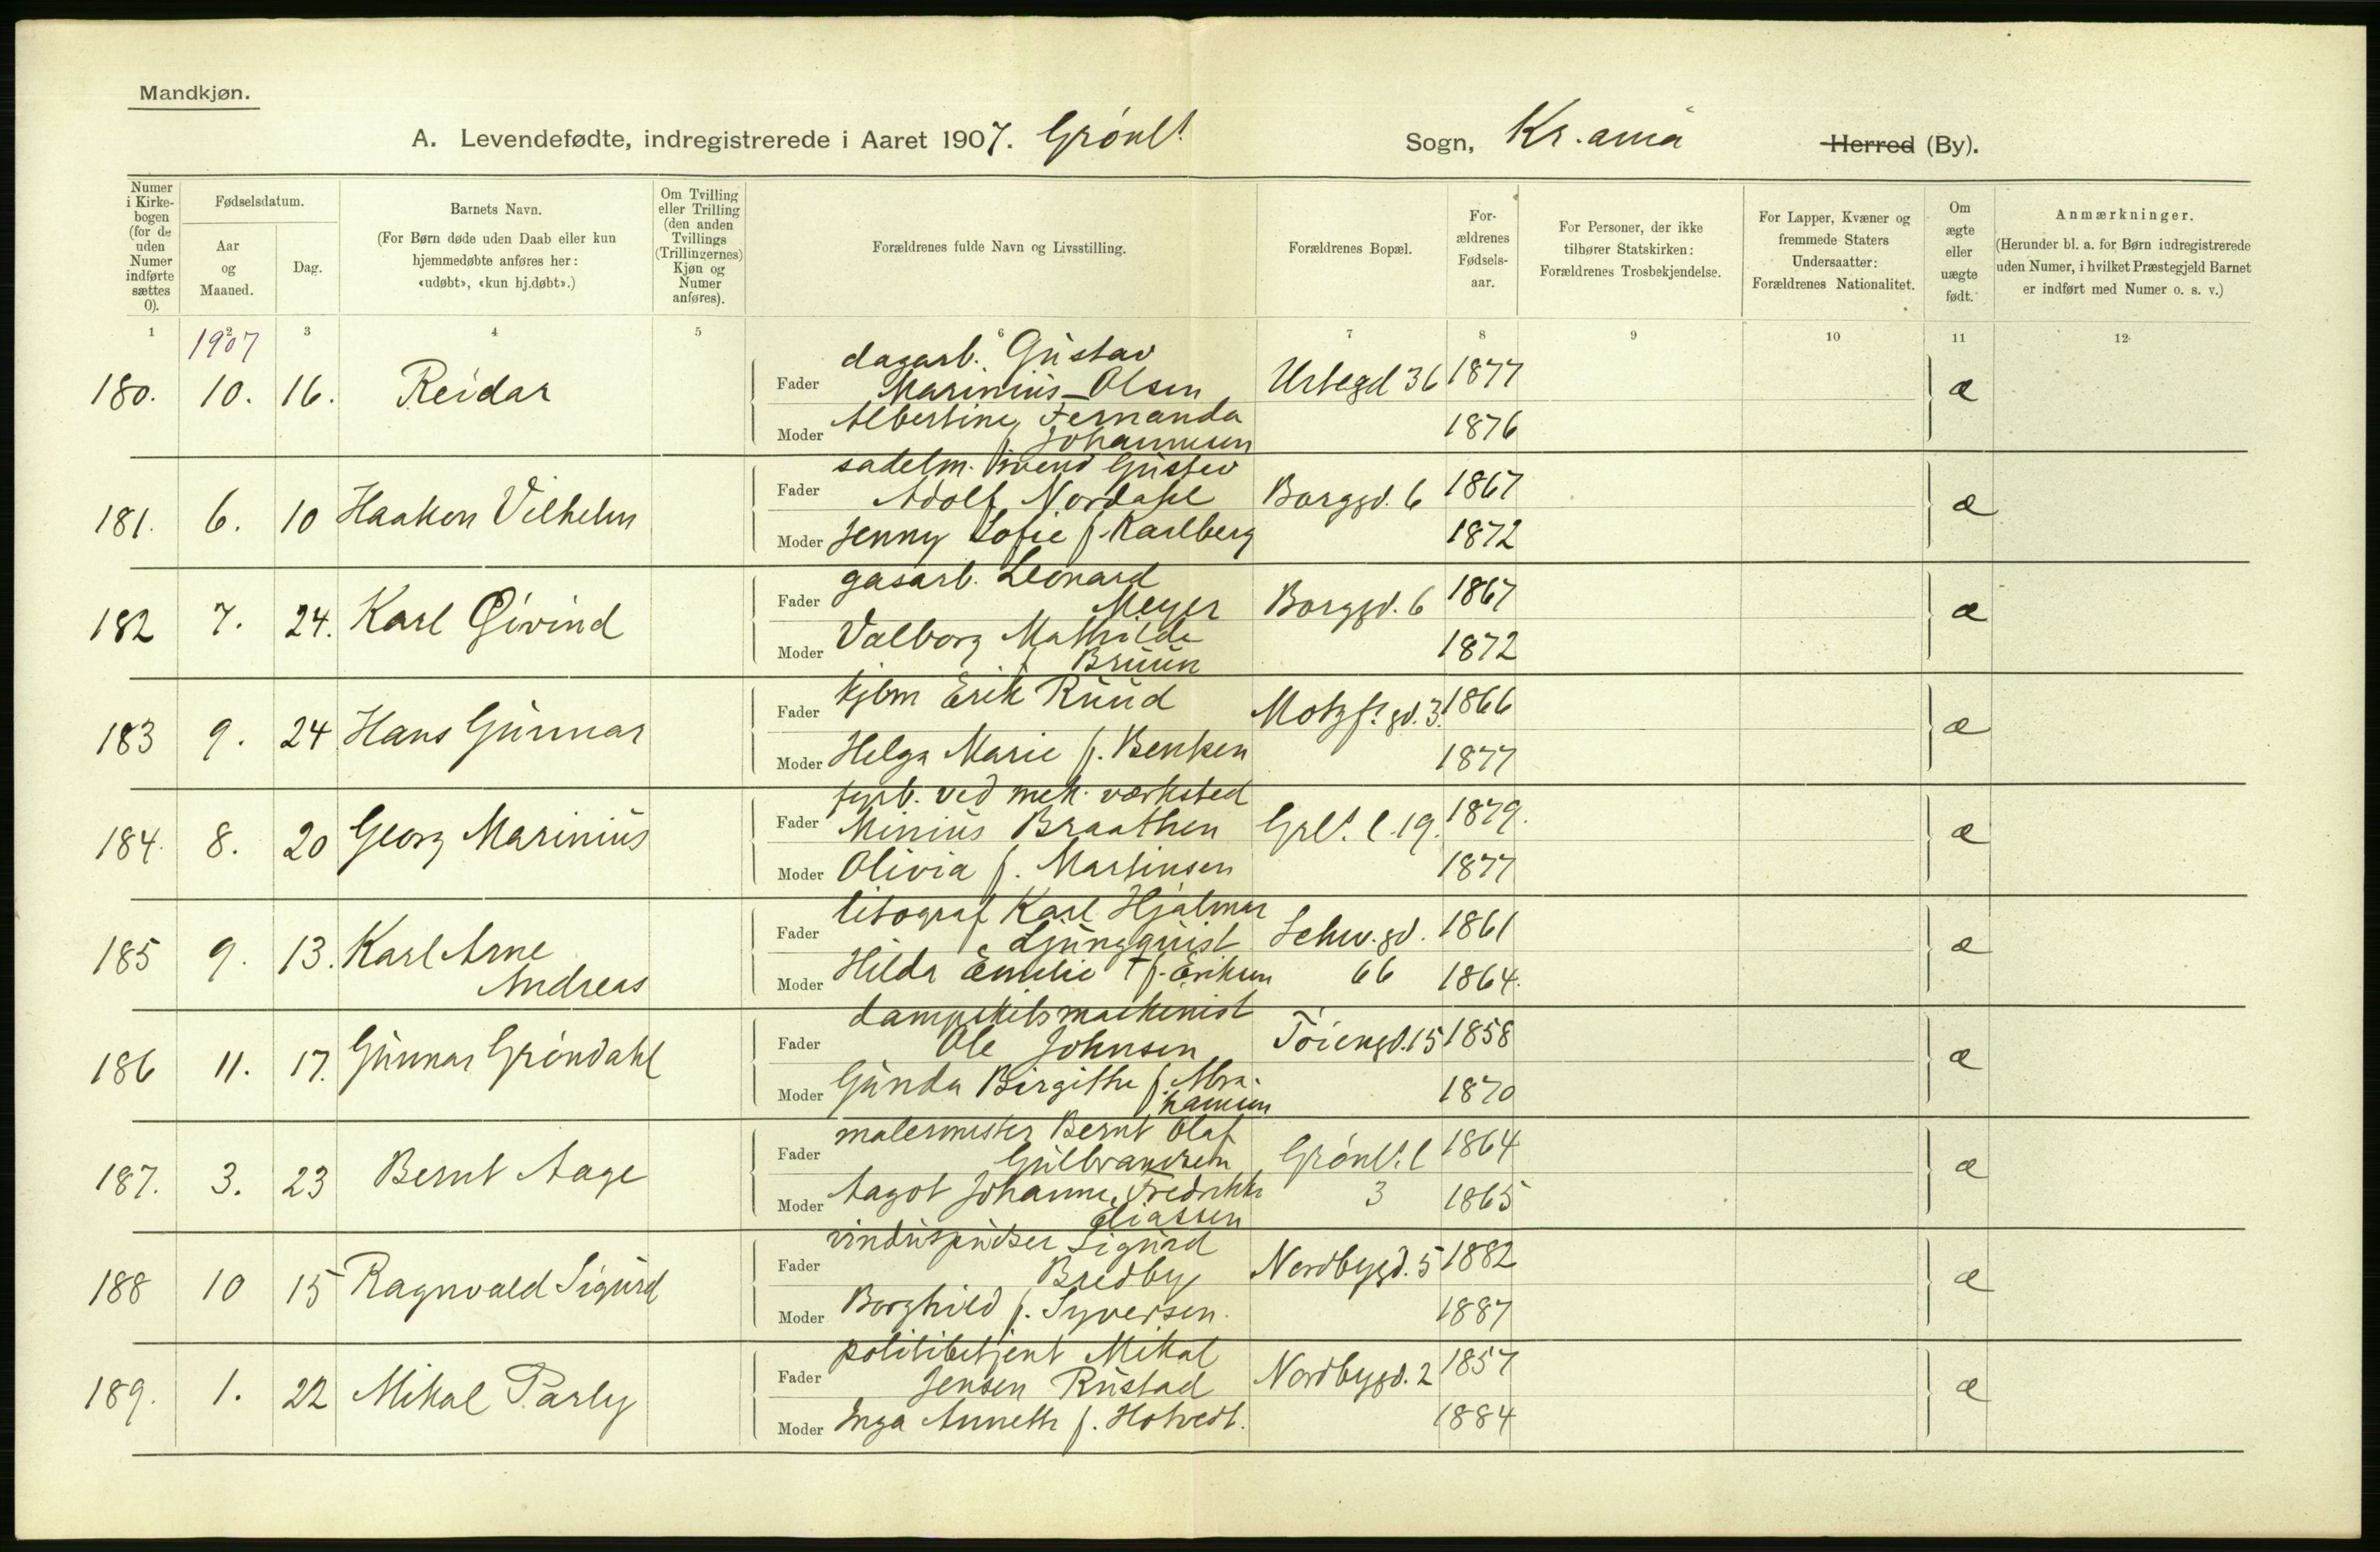 Mandkjøn.
A. Levendefødte, indregistrerede i Aaret 1907. Grønl. Sogn, Kr.ania Herred (By).
Numer i Kirkebogen (for de uden Numer indførte sættes 0).
Fødselsdatum.
Aar og Maaned.
Dag.
Barnets Navn.
(For Børn døde uden Daab eller kun hjemmedøbte anføres her: «udøbt», «kun hj.døbt».)
Om Tvilling eller Trilling (den anden Tvillings (Trillingernes) Kjøn og Numer anføres).
Forældrenes fulde Navn og Livsstilling.
Forældrenes Bopæl.
Forældrenes Fødselsaar.
For Personer, der ikke tilhører Statskirken: Forældrenes Trosbekjendelse.
For Lapper, Kvæner og fremmede Staters Undersaatter: Forældrenes Nationalitet.
Om ægte eller uægte født.
Anmærkninger.
(Herunder bl. a. for Børn indregistrerede uden Numer, i hvilket Præstegjeld Barnet er indført med Numer o. s. v.)
1 2 3 4 5 6 7 8 9 10 11 12
1907
180. 10. 16. Reidar
Fader dagarb. Gustav
Marinius Olsen Urtegd 36 1877 æ
Moder Albertine Fernanda
Johannesen 1876
181. 6. 10 Haakon Vilhelm
Fader sadelm. Svend Gustav
Adolf Nordahl Borggd. 6 1867 æ
Moder Jenny Sofie f. Karlberg 1872
182 7. 24. Karl Øivind
Fader gasarb. Leonard
Meyer Borggd. 6 1867 æ
Moder Valborg Mathilde
f. Bruun 1872
183 9. 24 Hans Gunnar
Fader kjbm Erik Ruud Motzf. gd. 3. 1866 æ
Moder Helga Marie f. Benksen 1877
184. 8. 20 Georg Marinius
Fader fyrb. ved mek. værksted
Minius Braathen Grl. l. 19. 1879. æ
Moder Olivia f. Martinsen 1877
185 9. 13. Karl Arne
Andreas
Fader litograf Karl Hjalmar
Ljungquist Schw.gd. 1861 æ
Moder Hilda Emilie f. Eriksen 66 1864.
186 11. 17. Gunnar Grøndahl
Fader dampskibsmaskinist
Ole Johnsen Tøiengd. 15 1858 æ
Moder Gunda Birgithe f. Abra-
hamsen 1870
187. 3. 23 Bernt Aage
Fader malermester Bernt Olaf
Gulbrandsen Grønl. l 1864 æ
Moder Aagot Johanne Fredrikke
Eliassen 3 1865
188 10 15 Ragnvald Sigurd
Fader vinduspudser Sigurd
Bredby Nordbygd. 5 1882 æ
Moder Borghild f. Syversen. 1887
189. 1. 22 Mikal Parly
Fader politibetjent Mikal
Jensen Rustad Nordbygd. 2 1857 æ
Moder Inga Annette f. Hotvedt. 1884